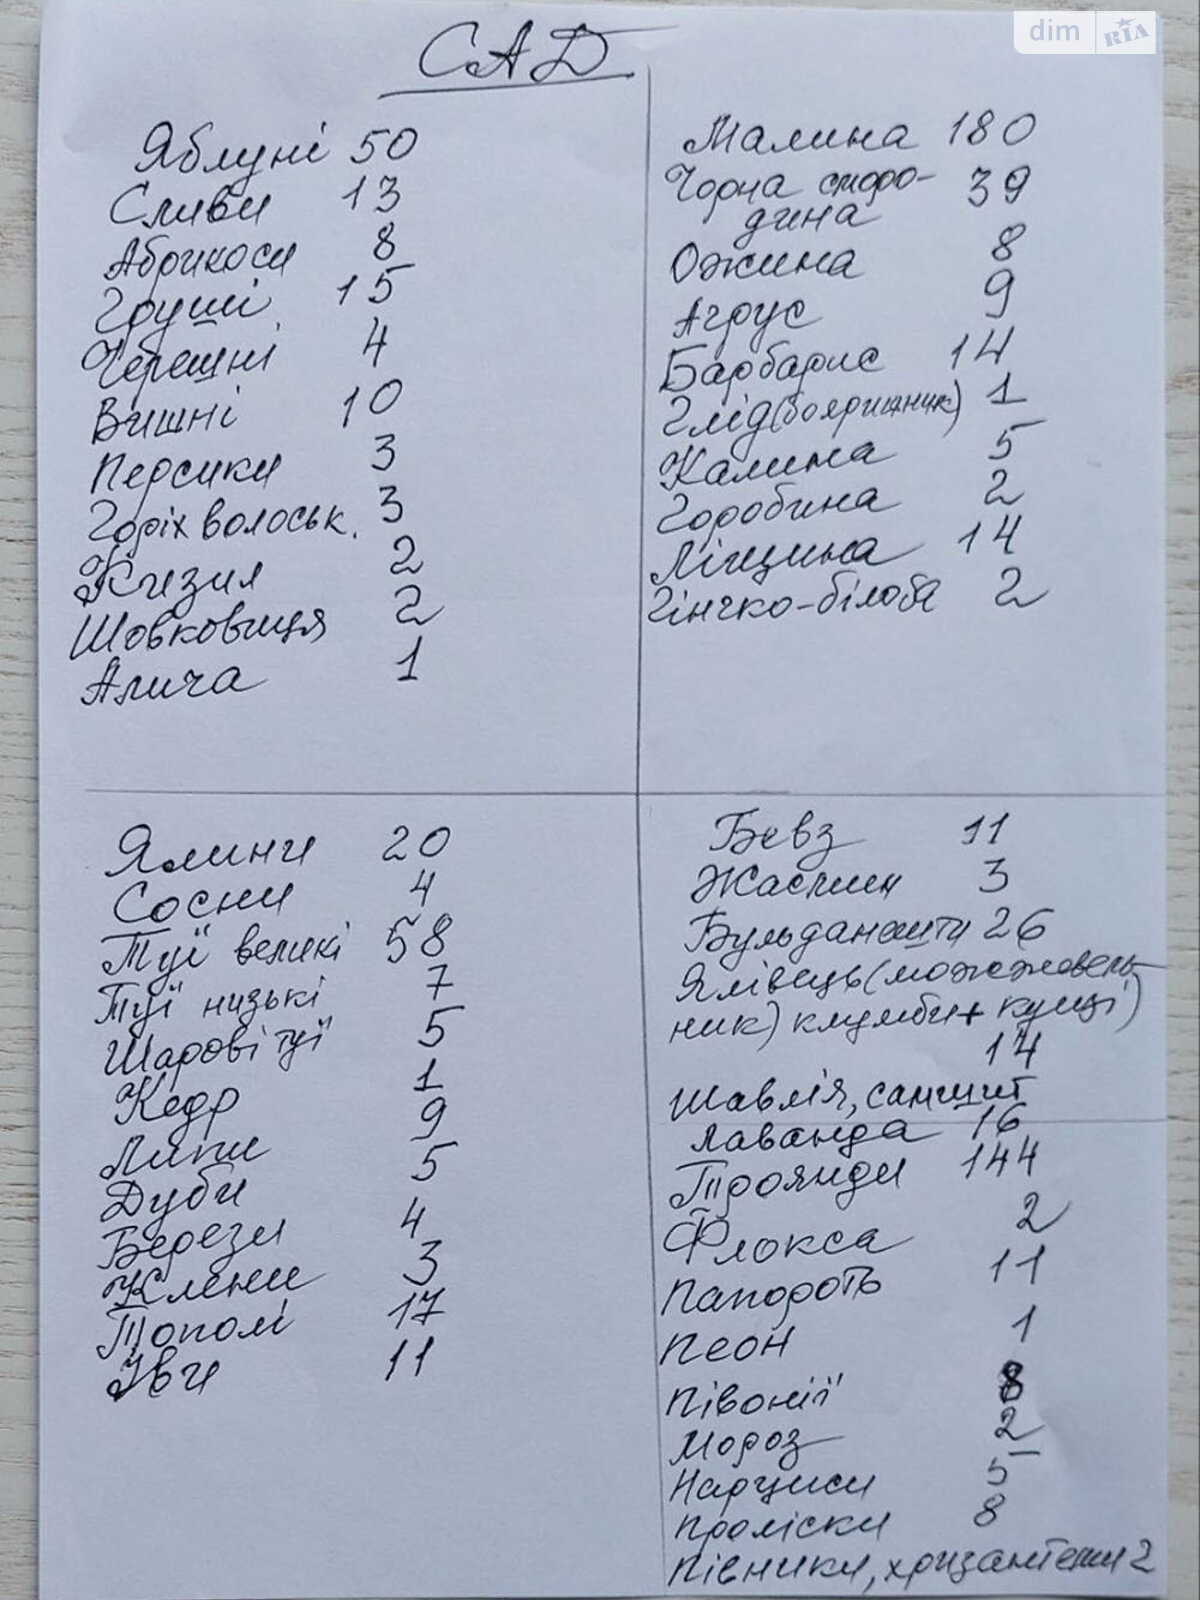 dim RIA
САД
Яблуні 50
Сливи 13
Абрикоси 8
Груші 15
Черешні 4
Вишні 10
Персики 3
Горіх волоськ. 3
Кизил 2
Шовковиця 2
Алича 1
Малина 180
Чорна сморо-
дина 39
Ожина 8
Агрус 9
Барбарис 14
Глід(бояришник) 1
Калина 5
Горобина 2
Ліщина 14
Гінчко-білоба 2
Ялини 20
Сосни 4
Туї великі 58
Туї низькі 7
Шарові туї 5
Кедр 1
Липи 9
Дуби 5
Берези 4
Клени 3
Тополі 17
Іви 11
Бевз 11
Жасмин 3
Бульданежи 26
Ялівець(можжевель-
ник) клумби+ кущі)
14
Шавлія, самшит
лаванда 16
Троянди 144
Флокса 2
Папороть 11
Пеон 1
Півонії 8
Мороз 2
Нарциси 5
Проліски 8
Півники, хризантеми 2